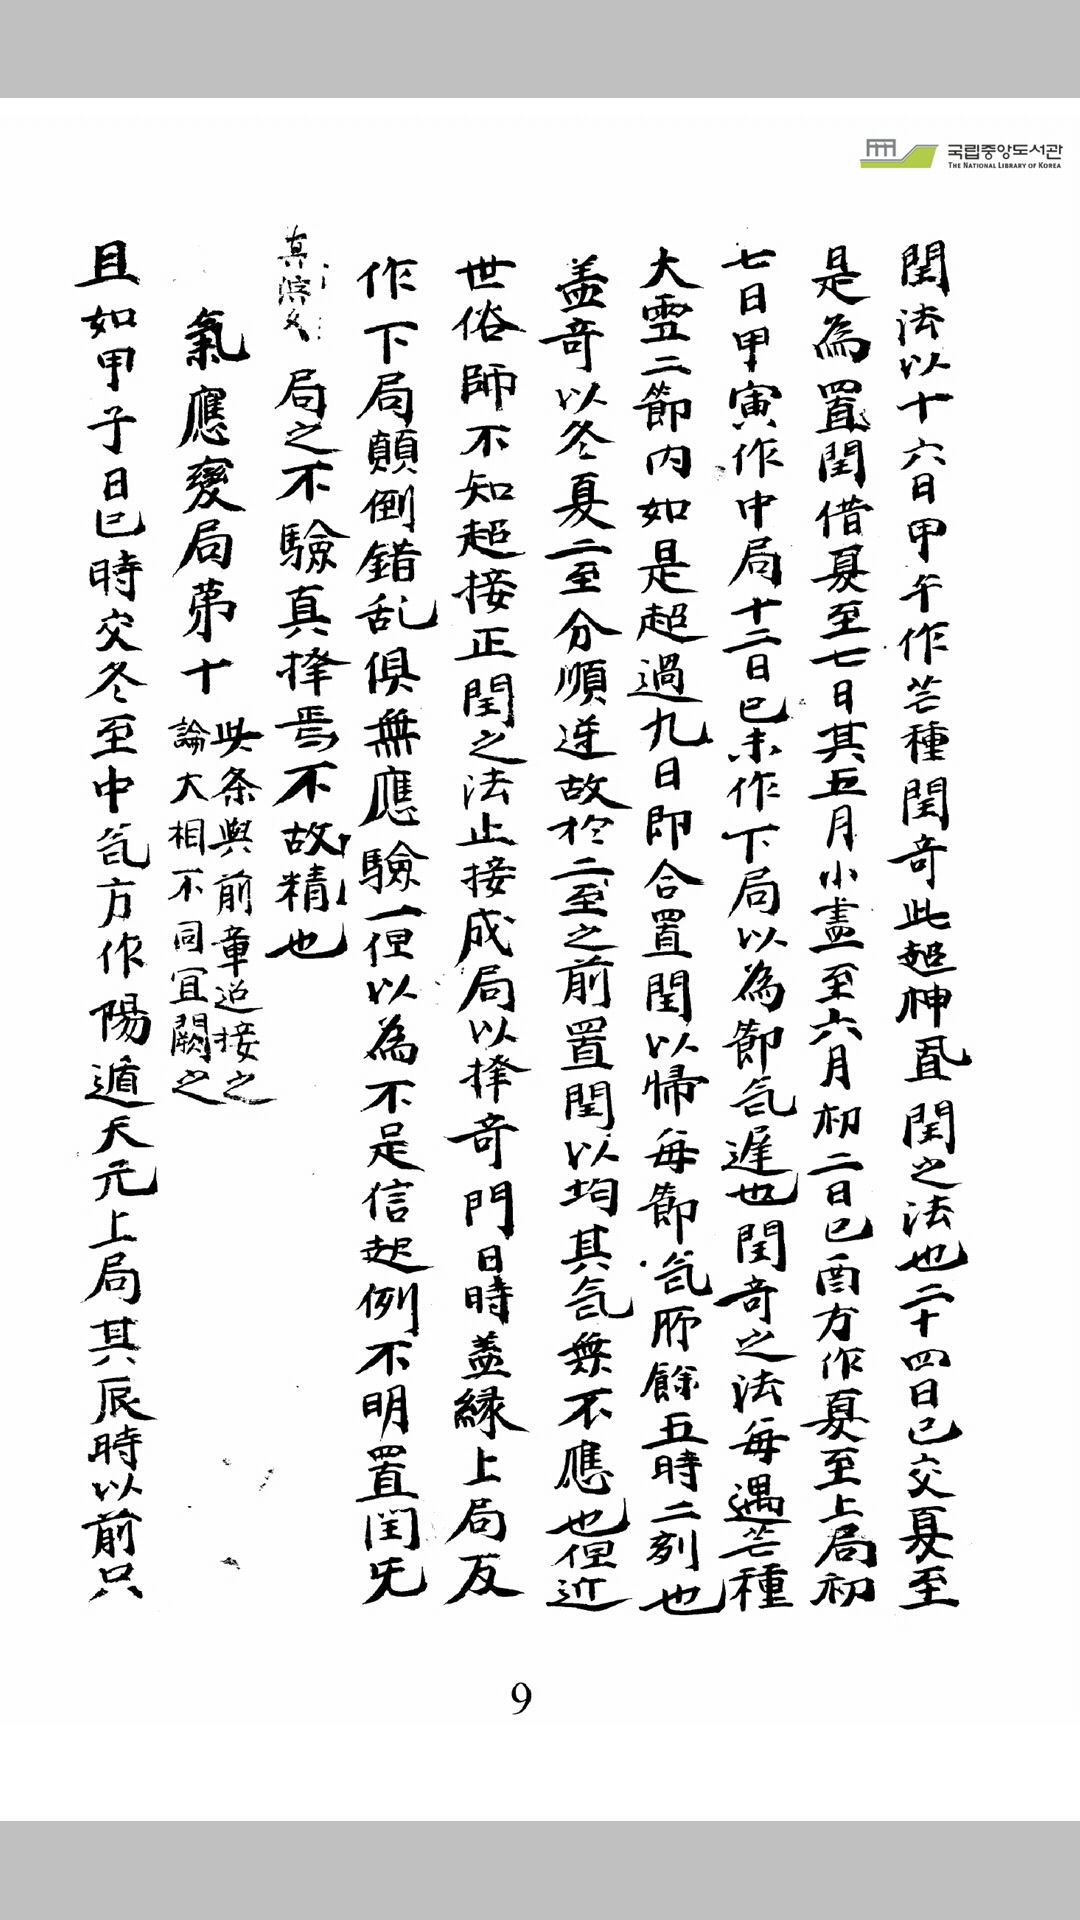 국립중앙도서관
THE NATIONAL LIBRARY OF KOREA
閏法以十六日甲午作芒種閏奇此超神直閏之法也二十四日已交夏至
是為置閏借夏至七日其五月小盡至六月初二日巳酉方作夏至上局初
七日甲寅作中局十二日巳未作下局以為節气遲也閏奇之法每遇芒種
大雪二節內如是超過九日即合置閏以歸每節气所餘五時二刻也
盖奇以冬夏二至分順逆故於二至之前置閏以均其气無不應也但近
世俗師不知超接正閏之法止接成局以擇奇門日時盖緣上局反
作下局顛倒錯乱俱無應驗一但以為不足信起例不明置閏旡
局之不驗真擇焉不故精也
氣應變局第十
此条與前章迨接之
論大相不同宜闕之
且如甲子日巳時交冬至中气方作陽遁天元上局其辰時以前只
9